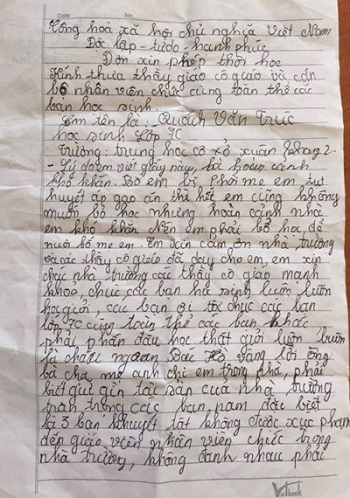 Date No
Cộng hoà xã hội chủ nghĩa Việt Nam
Độc lập - tự do - hanh phúc
Đơn xin phép thôi học
Kính thưa thầy giáo cô giáo và cán
bộ nhân viên chức cùng toàn thể các
bạn học sinh.
Em tên là: Quách Văn Trúc
học sinh Lớp 7C
trường: trung học cơ xở xuân
- Lý do em viết giấy này, là hoàn cảnh
khó khăn. Bố em bị phổi mẹ em tụt
huyết áp gạo ăn thì hết em cũng không
muốn bỏ học nhưng hoàn cảnh nhà
em khó khăn nên em phải bỏ học để
nuôi bố mẹ em. Em xin cảm ơn nhà trường
và các thầy cô giáo đã dạy cho em, em xin
chúc nhà trường các thầy cô giáo mạnh
khoẻ, chúc các bạn học sinh luôn luôn
học giỏi, các bạn ơi tôi chúc các bạn
lớp 7C cùng toàn thể các bạn khác
phải phấn đấu học thật giỏi luôn luôn
là cháu ngoan Bác Hồ vâng lời ông
bà cha, mẹ anh chị em trong nhà, phải
biết giữ gìn tài sản của nhà trường
các bạn, nam đặc biệt
là 3 bạn khuyết tật không được xúc phạm
đến giáo viên nhân viên chức trong
nhà trường, không đánh nhau phải